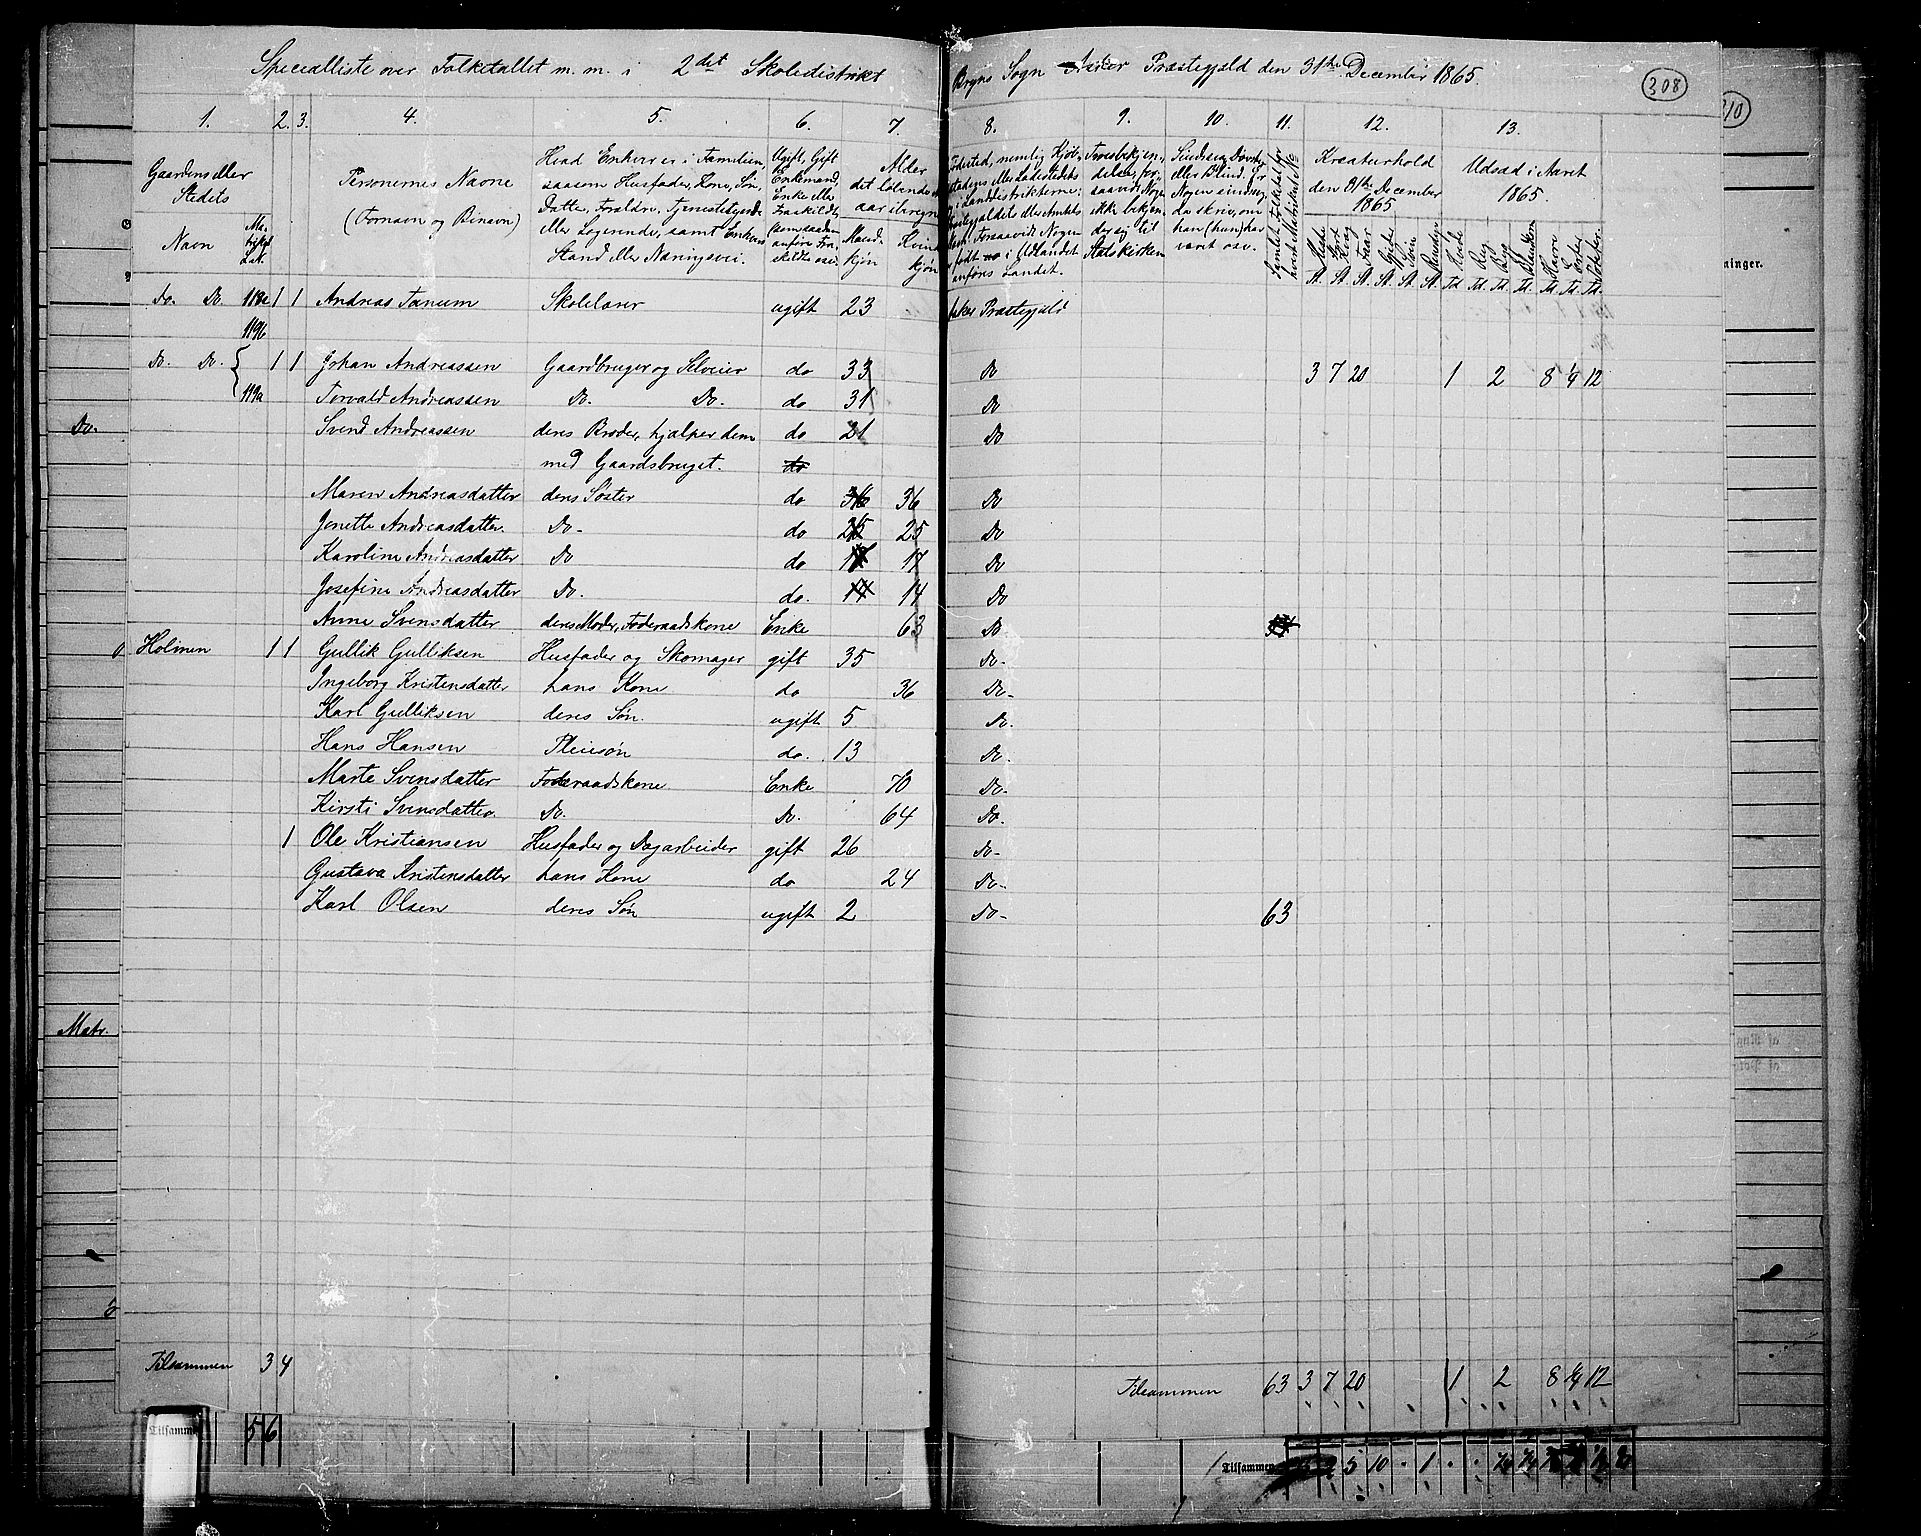 Specialliste over Folketallet m. m. i 2det Skoledistrikt Bryns Sogn Asker Præstegjeld den 31te December 1865.
308
310
1. 2. 3. 4. 5. 6. 7. 8. 9. 10. 11. 12. 13.
Gaardens eller Stedets
Navn
Matrikul Lnr.
Personernes Navne
(Fornavn og Binavn)
Hvad Enhver er i Familien,
saasom Husfader, Kone, Søn,
Datter, Forældre, Tjenestetyende
eller Logerende, samt Enhvers
Stand eller Næringsvei.
Ugift, Gift
Enkemand,
Enke eller
Fraskildt
Alder
det løbende
aar iberegnet
Mandkjøn
Kvindekjøn
Fødested, nemlig Kjøbstadens eller Ladestedets
i Landdistrikterne:
Præstegjeldets eller Amtets
Forsaavidt Nogen
født i Udlandet
anføres Landet.
Troesbekjendelse, forsaavidt Nogen
ikke bekjender sig til
Statskirken
Sindssyg, Døvstum
eller Blind. Er
Nogen sindssyg
da skriv, om
han (hun) har
været det.
Kreaturhold
den 31te December
1865
Udsæd i Aaret
1865.
Do. Do. 118c 1 1 Andreas Tanum Skolelærer ugift 23 Asker Præstegjeld
119b
Do. Do. 1 1 Johan Andreassen Gaardbruger og Selveier do 33 Do 3 7 20 1 2 8 1/4 12
119a Torvald Andreassen Do. Do. do 31 Do
Do.
Svend Andreassen deres Broder, hjælper dem do 21 Do
med Gaardsbruget. do
Maren Andreasdatter deres Søster do 36 36 Do
Jonette Andreasdatter. Do. do 25 25 Do
Karoline Andreasdatter Do do 17 17 Do
Josefine Andreasdatter Do. do. 14 14 Do
Anne Svensdatter deres Moder, Føderaadskone Enke 63 Do
Holmen 1 1 Gullik Gulliksen Husfader og Skomager gift 35 Do.
Ingeborg Kristensdatter hans Kone do 36 Do.
Karl Gulliksen deres Søn. ugift 5 Do.
Hans Hansen Pleiesøn do. 13 Do.
Marte Svensdatter Føderaadskone Enke 70 Do.
Kirsti Svensdatter Do. Do. 64 Do.
1 Ole Kristiansen Husfader og Dagarbeider gift 26 Do.
Gustava Kristensdatter hans Kone do 24 Do.
Karl Olsen deres Søn ugift 2 Do. 63
Matr.
Tilsammen 3 4
Tilsammen 63 3 7 20 1 2 8 1/4 12
Tilsamme 5 6
Tilsammen 2 5 10 . 1 . .
ninger.